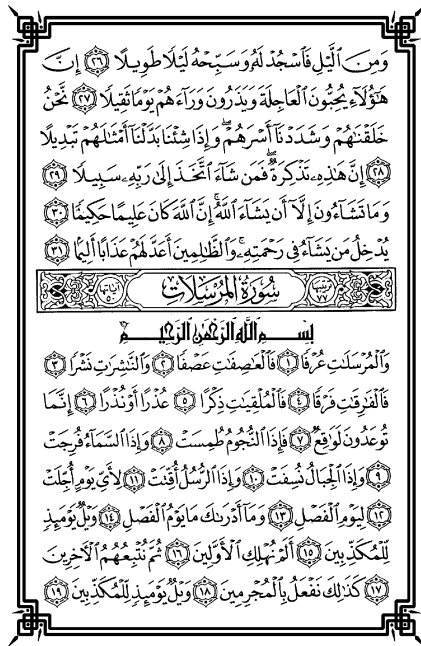 وَمِنَ ٱلَّيْلِ فَٱسْجُدْ لَهُۥ وَسَبِّحْهُ لَيْلًا طَوِيلًا ٢٦ إِنَّ
هَٰٓؤُلَآءِ يُحِبُّونَ ٱلْعَاجِلَةَ وَيَذَرُونَ وَرَآءَهُمْ يَوْمًا ثَقِيلًا ٢٧ نَّحْنُ
خَلَقْنَٰهُمْ وَشَدَدْنَآ أَسْرَهُمْ ۖ وَإِذَا شِئْنَا بَدَّلْنَآ أَمْثَٰلَهُمْ تَبْدِيلًا
٢٨ إِنَّ هَٰذِهِۦ تَذْكِرَةٌ ۖ فَمَن شَآءَ ٱتَّخَذَ إِلَىٰ رَبِّهِۦ سَبِيلًا ٢٩
وَمَا تَشَآءُونَ إِلَّآ أَن يَشَآءَ ٱللَّهُ ۚ إِنَّ ٱللَّهَ كَانَ عَلِيمًا حَكِيمًا ٣٠
يُدْخِلُ مَن يَشَآءُ فِى رَحْمَتِهِۦ ۚ وَٱلظَّٰلِمِينَ أَعَدَّ لَهُمْ عَذَابًا أَلِيمًۢا ٣١
ترتيبها ٧٧ سُورَةُ الْمُرْسَلَاتِ آياتها ٥٠
بِسْمِ ٱللَّهِ ٱلرَّحْمَٰنِ ٱلرَّحِيمِ
وَٱلْمُرْسَلَٰتِ عُرْفًا ١ فَٱلْعَٰصِفَٰتِ عَصْفًا ٢ وَٱلنَّٰشِرَٰتِ نَشْرًا ٣
فَٱلْفَٰرِقَٰتِ فَرْقًا ٤ فَٱلْمُلْقِيَٰتِ ذِكْرًا ٥ عُذْرًا أَوْ نُذْرًا ٦ إِنَّمَا
تُوعَدُونَ لَوَٰقِعٌ ٧ فَإِذَا ٱلنُّجُومُ طُمِسَتْ ٨ وَإِذَا ٱلسَّمَآءُ فُرِجَتْ
٩ وَإِذَا ٱلْجِبَالُ نُسِفَتْ ١٠ وَإِذَا ٱلرُّسُلُ أُقِّتَتْ ١١ لِأَىِّ يَوْمٍ أُجِّلَتْ
١٢ لِيَوْمِ ٱلْفَصْلِ ١٣ وَمَآ أَدْرَىٰكَ مَا يَوْمُ ٱلْفَصْلِ ١٤ وَيْلٌ يَوْمَئِذٍ
لِّلْمُكَذِّبِينَ ١٥ أَلَمْ نُهْلِكِ ٱلْأَوَّلِينَ ١٦ ثُمَّ نُتْبِعُهُمُ ٱلْءَاخِرِينَ
١٧ كَذَٰلِكَ نَفْعَلُ بِٱلْمُجْرِمِينَ ١٨ وَيْلٌ يَوْمَئِذٍ لِّلْمُكَذِّبِينَ ١٩